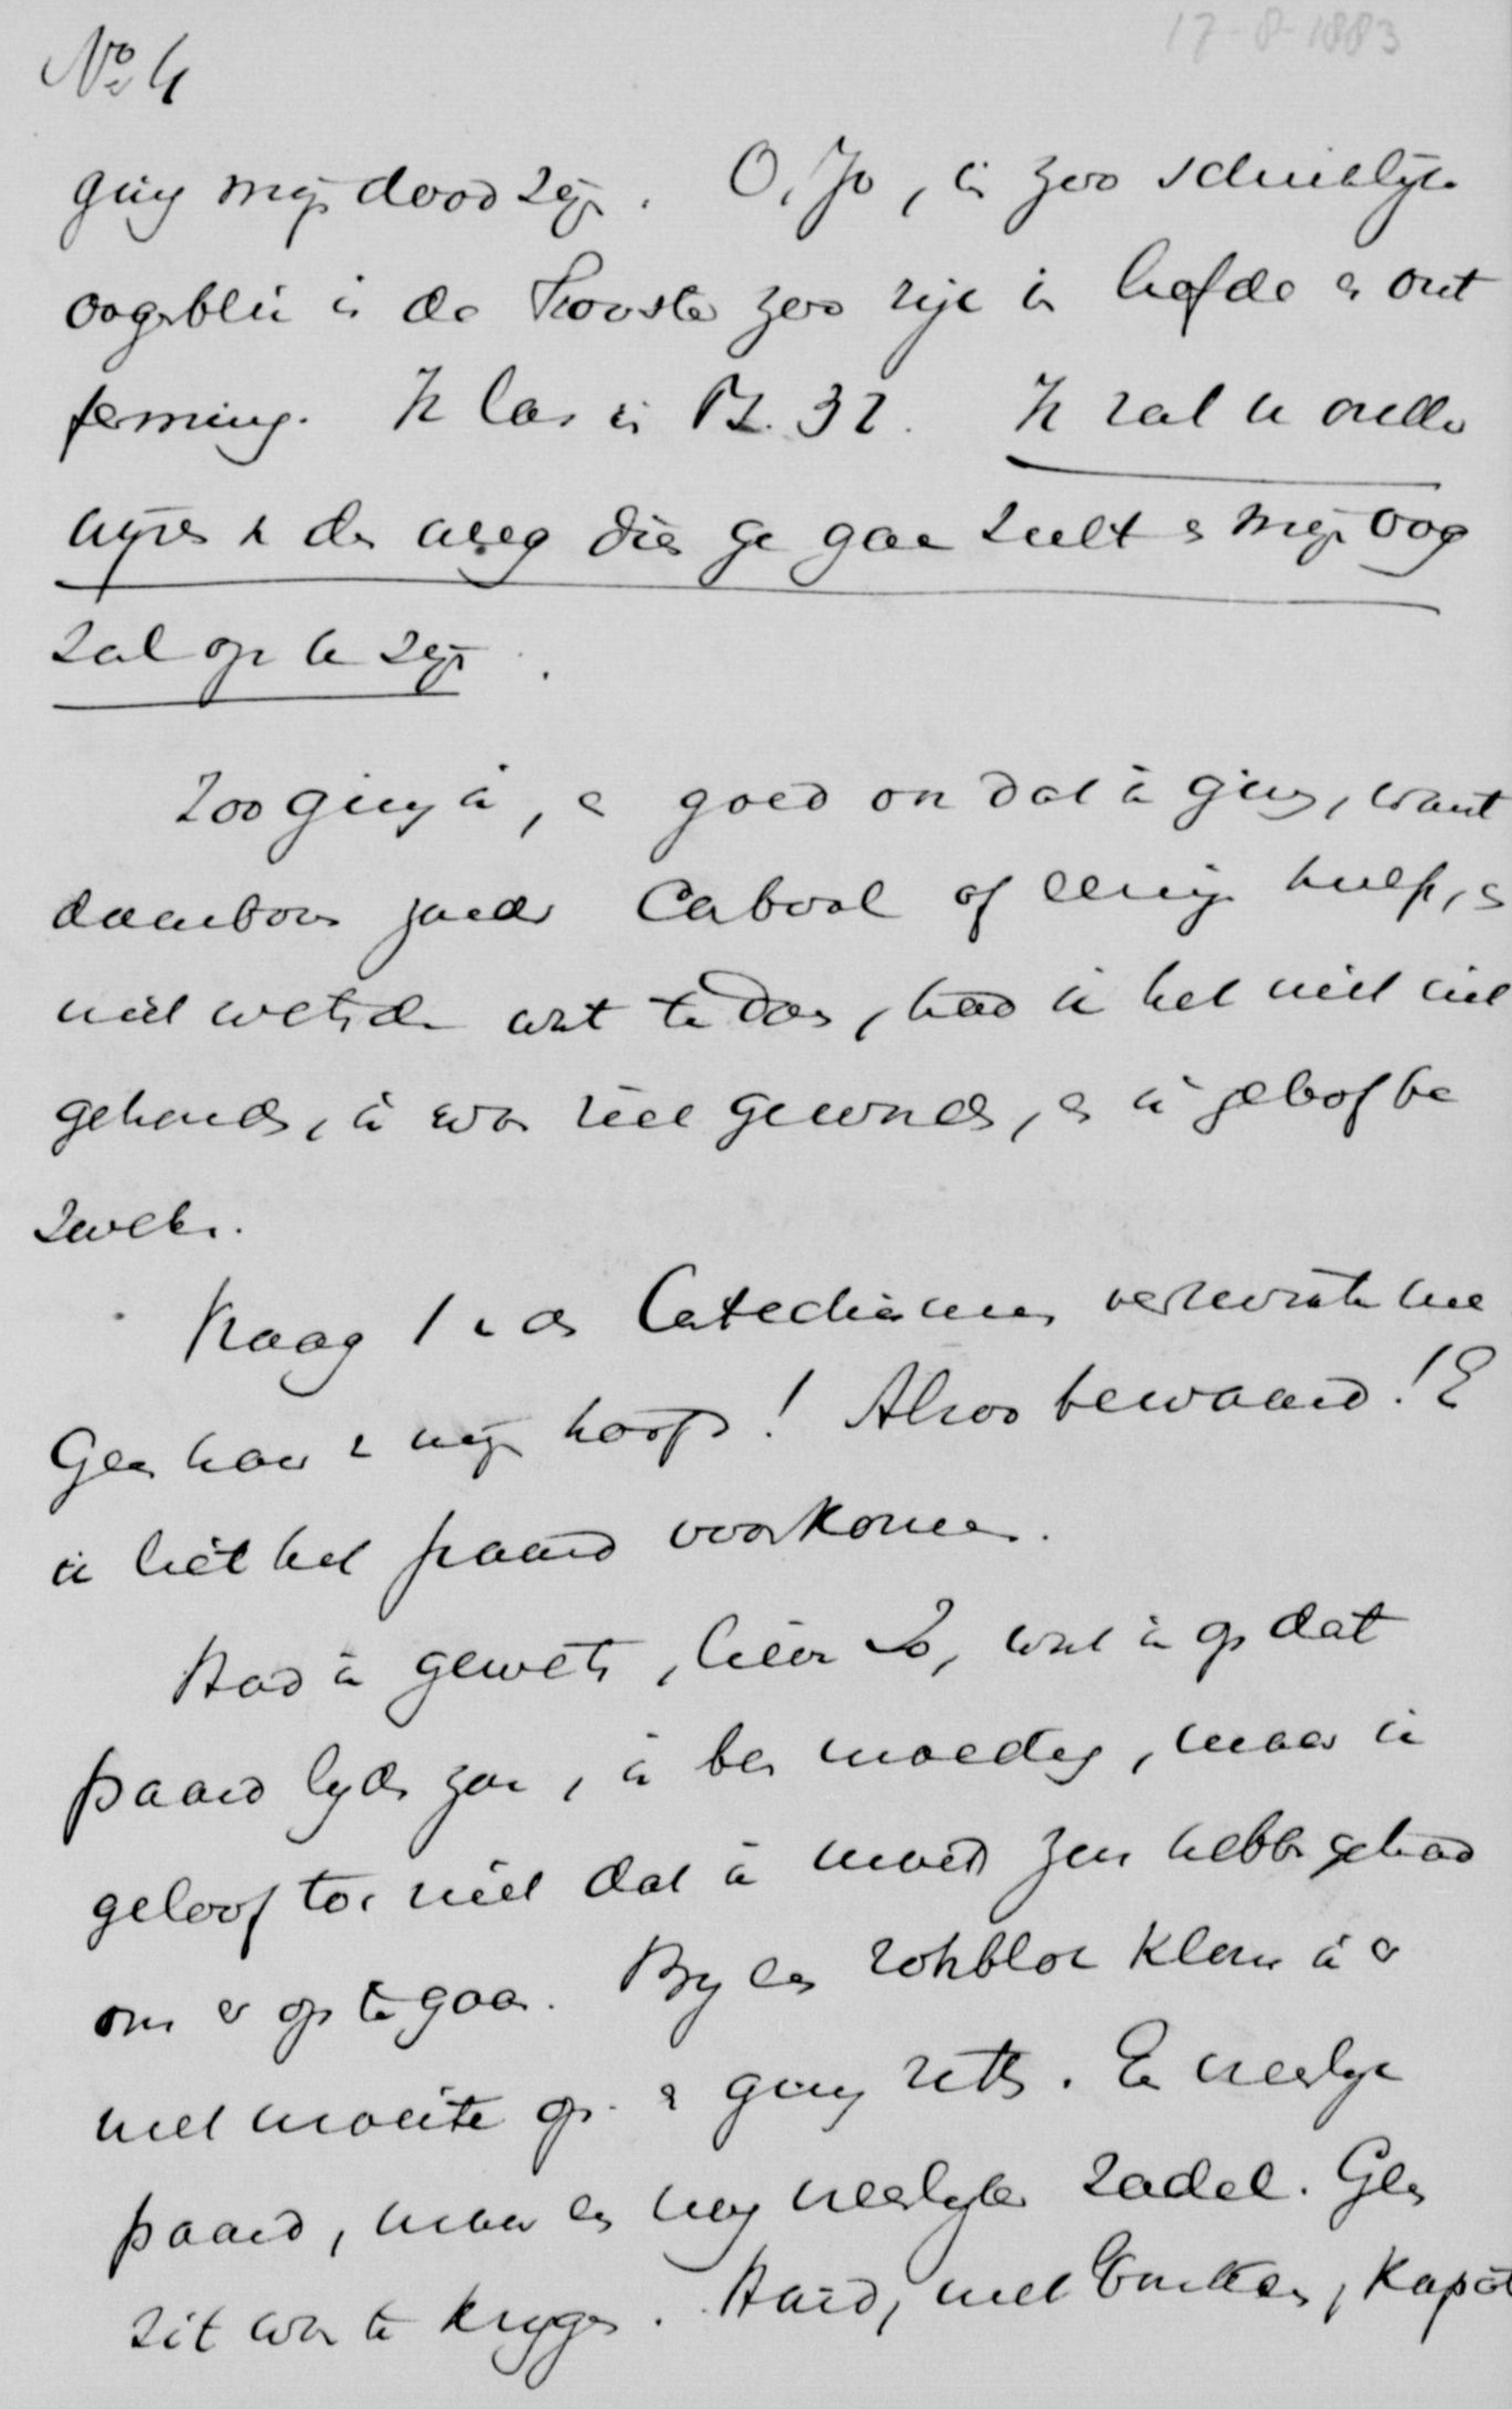 No 4
17-8-1883
ging mijn dood zijn. O, Jo, in zoo schrikkelijke
oogenblik is de Trooster zoo rijk in liefde en ont
ferming. Ik las in Ps. 32. Ik zal u onder
wijzen in den weg dien ge gaan zult en mijn oog
zal op u zijn.
Zoo ging ik, en goed ook dat ik ging, want
daarboven zonder Carbool of eenige hulp, en
niet wetende wat te doen, had ik het niet uit
gehouden, ik was zeer gewond, en ik geloof be
zweken.
Vraag 1 van den Catechismus verkwikte me
Geen haar van mijn hoofd! Alzoo bewaard! En
ik liet het paard voorkomen.
Had ik geweten, lieve Jo, wat ik op dat
paard lijden zou, ik ben moedig, maar ik
geloof toch niet dat ik moed zou hebben gehad
om er op te gaan. Bij een rotsblok klom ik er
met moeite op en ging zitten. Een heerlijk
paard, maar een nog heerlijker zadel. Geen
zit was te krijgen. Hard, met bulten, kapot